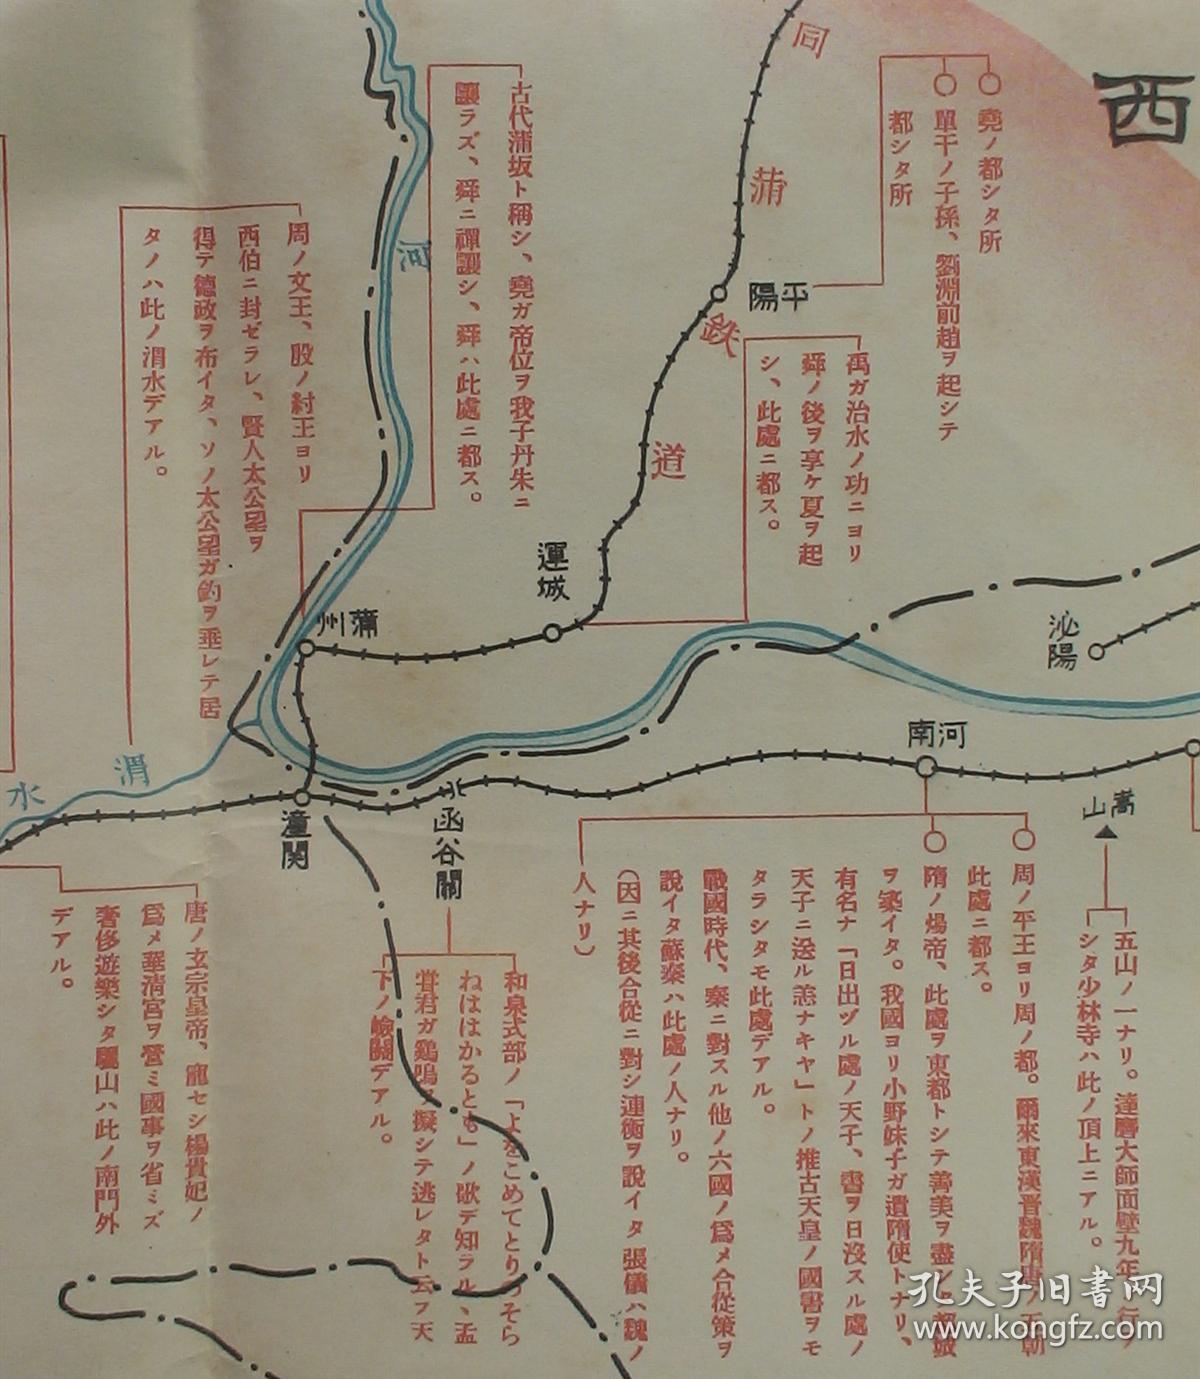 西
同
蒲
鉄
道
堯ノ都シタ所
單于ノ子孫、劉淵前趙ヲ起シテ
都シタ所
平陽
禹ガ治水ノ功ニヨリ
舜ノ後ヲ享ケ夏ヲ起
シ、此處ニ都ス。
古代蒲坂ト稱シ、堯ガ帝位ヲ我子丹朱ニ
讓ラズ、舜ニ禪讓シ、舜ハ此處ニ都ス。
河
周ノ文王、殷ノ紂王ヨリ
西伯ニ封ゼラレ、賢人太公望ヲ
得テ德政ヲ布イタ、ソノ太公望ガ釣ヲ垂レテ居
タノハ此ノ渭水デアル。
運城
蒲州
沁陽
河南
嵩山
渭
水
潼関
函谷關
五山ノ一ナリ。達磨大師面壁九年ノ行ヲ
シタ少林寺ハ此ノ頂上ニアル。
周ノ平王ヨリ周ノ都。爾來東漢晋魏隋唐ノ五朝
此處ニ都ス。
隋ノ煬帝、此處ヲ東都トシテ善美ヲ盡シタ都城
ヲ築イタ。我國ヨリ小野妹子ガ遺隋使トナリ、
有名ナ「日出ヅル處ノ天子、書ヲ日沒スル處ノ
天子ニ送ル恙ナキヤ」トノ推古天皇ノ國書ヲモ
タラシタモ此處デアル。
戰國時代、秦ニ對スル他ノ六國ノ爲メ合從策ヲ
說イタ蘇秦ハ此處ノ人ナリ。
(因ニ其後合從ニ對シ連衡ヲ說イタ張儀ハ魏ノ
人ナリ)
和泉式部ノ「よをこめてとりのそら
ねははかるとも」ノ歌デ知ラル、孟
甞君ガ鷄鳴ヲ擬シテ逃レタト云フ天
下ノ嶮關デアル。
唐ノ玄宗皇帝、寵セシ楊貴妃ノ
爲メ華淸宮ヲ營ミ國事ヲ省ミズ
奢侈遊樂シタ驪山ハ此ノ南門外
デアル。
孔夫子旧书网
www.kongfz.com